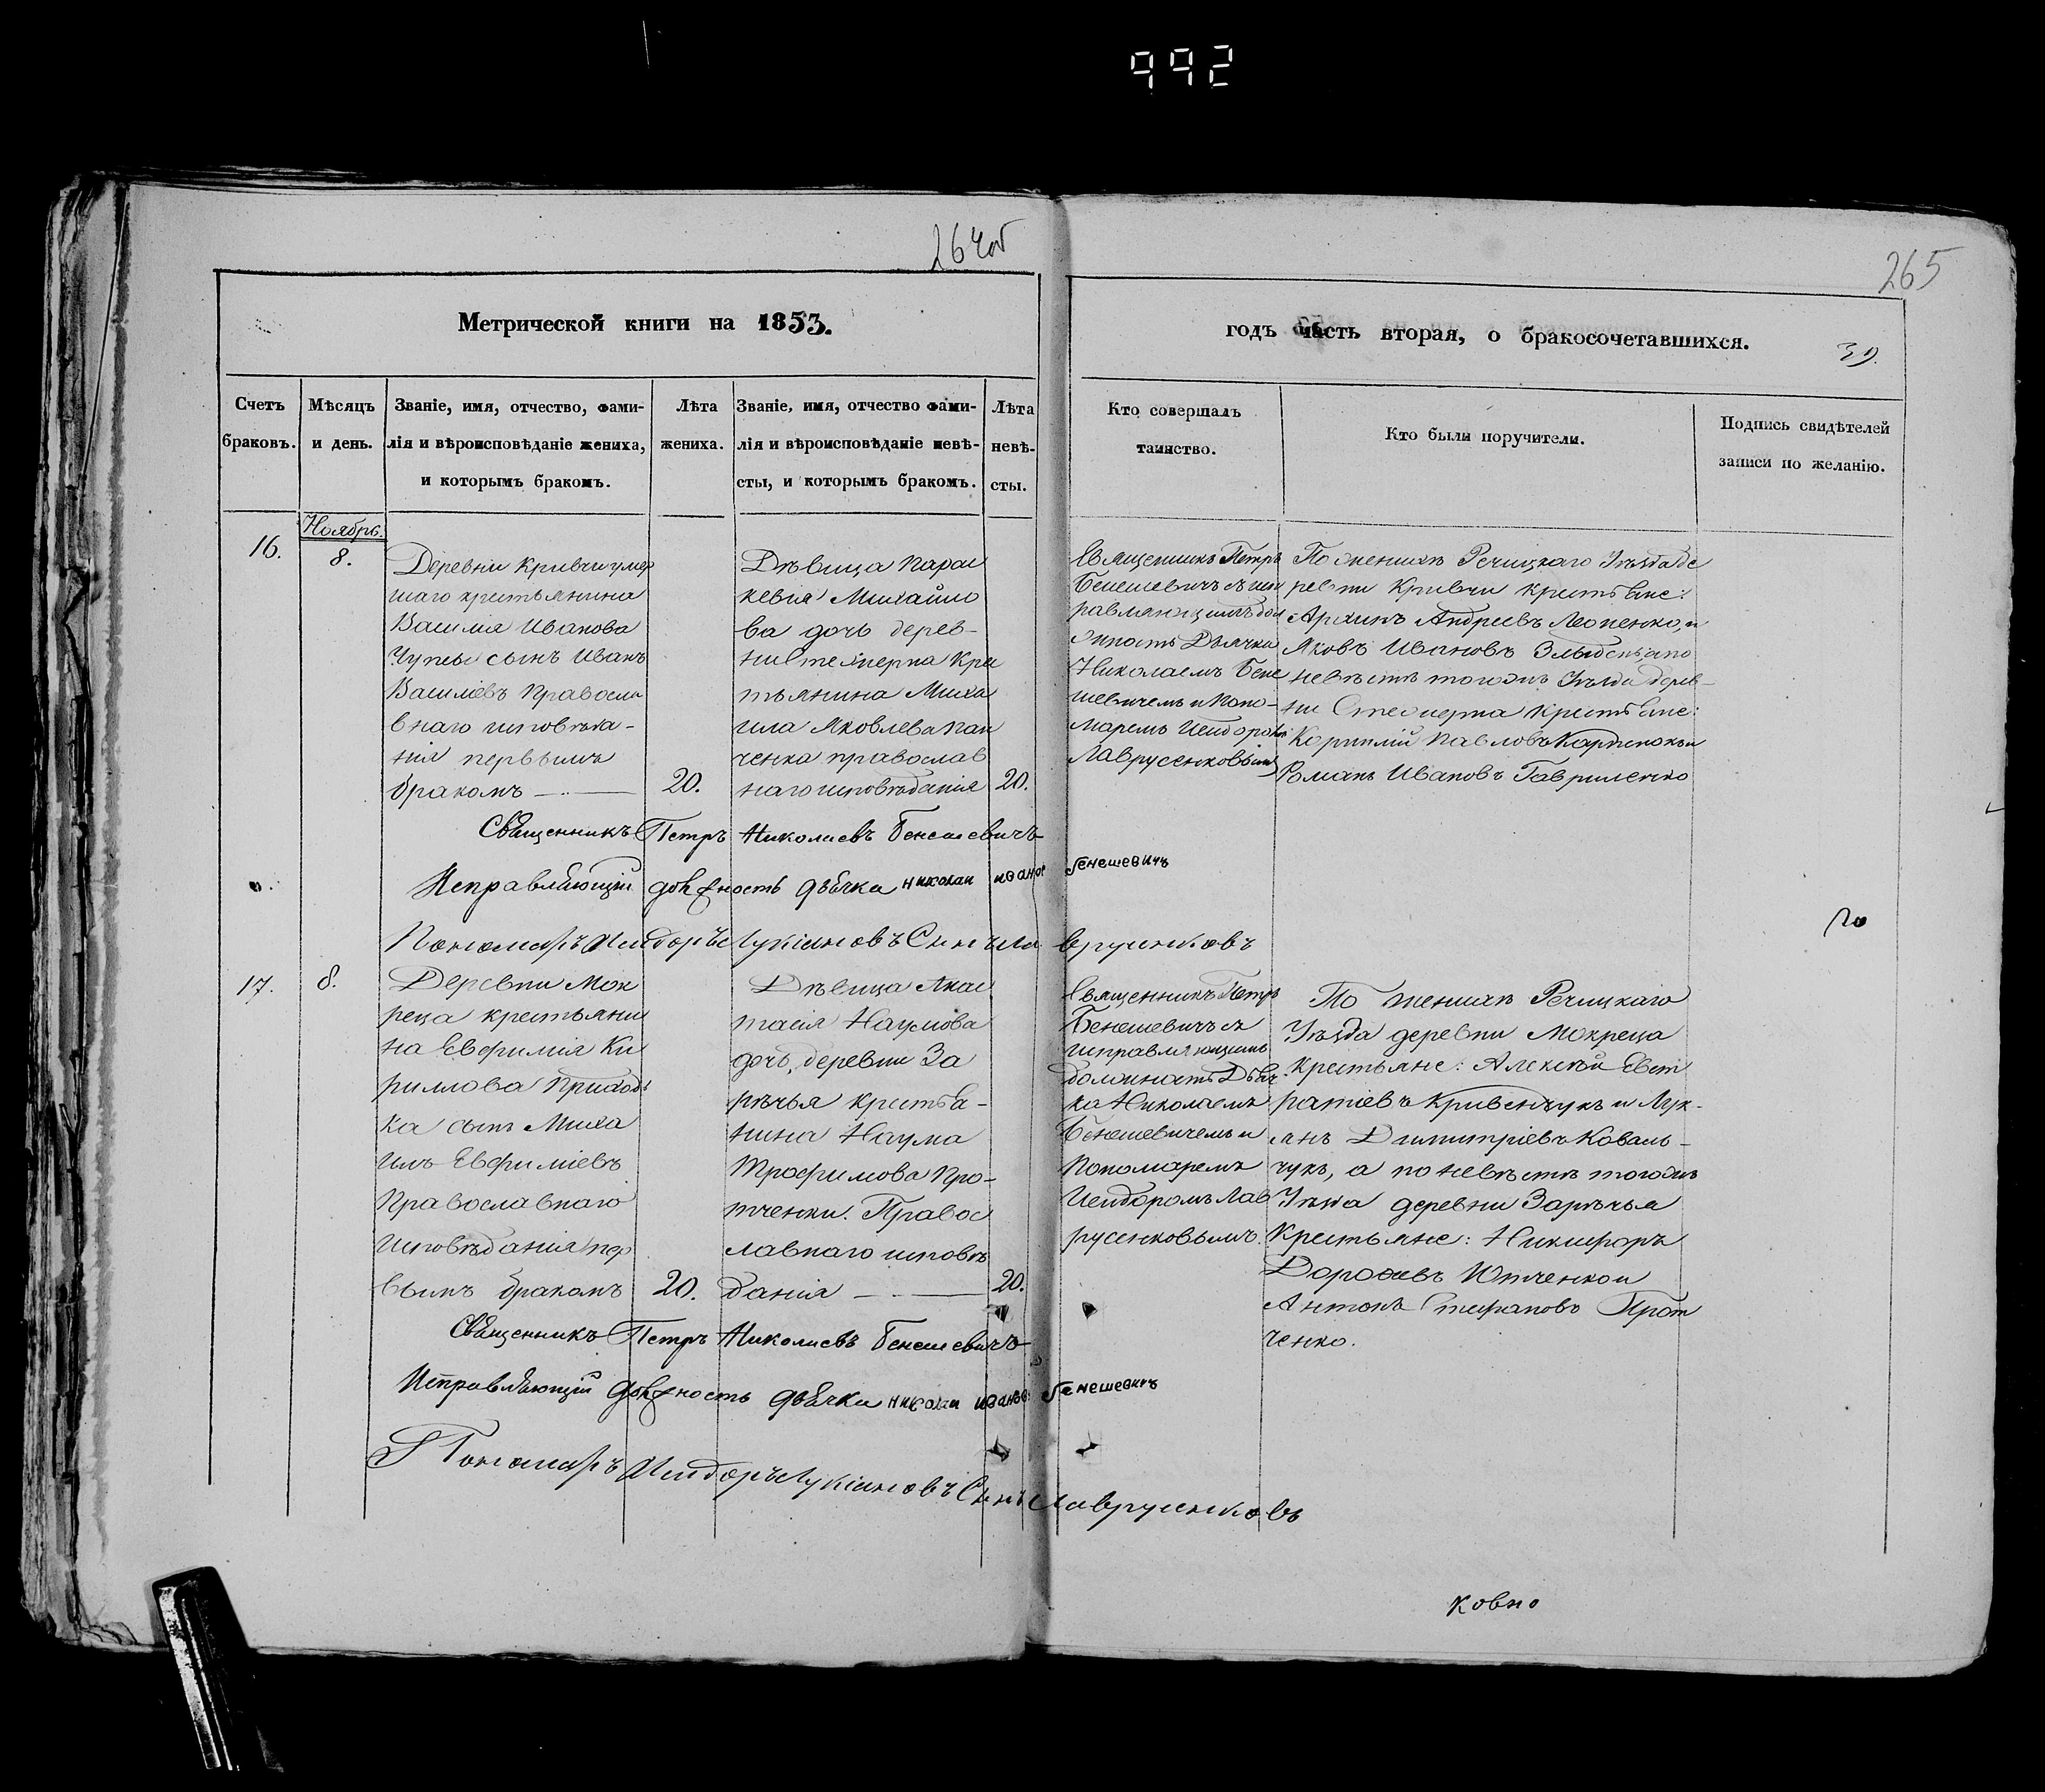 992
264об
265
Метрической книги на 1853.
годъ часть вторая, о бракосочетавшихся.
39.
Счетъ
браковъ.
Мѣсяцъ
и день.
Званіе, имя, отчество, фами-
лія и вѣроисповѣданіе жениха,
и которымъ бракомъ.
Лѣта
жениха.
Званіе, имя, отчество фами-
лія и вѣроисповѣданіе невѣ-
сты, и которымъ бракомъ.
Лѣта
невѣ-
сты.
Кто совершалъ
таинство.
Кто были поручители.
Подпись свидѣтелей
записи по желанію.
16.
Ноябрь.
8.
Деревни Кривчи умер
шаго крестьянина
Василія Иванова
сынъ Иванъ
Василіевъ Правосла
внаго исповѣда-
нія первымъ
бракомъ
20.
Дѣвица Парас
кевія Михайло
ва дочь дерев-
ни крес
тьянина Миха
ила Яковлева Пан
ченка православ
наго исповѣданія
20.
Священникъ Петръ
Бенешевичъ съ исп
равляющимъ дол
жность Дьячка
Николаемъ Бене
шевичемъ и Поно-
маремъ Исидоромъ
Лаврусенковымъ
По женихѣ Речицкаго Уѣзда де
ревни Кривчи крестьяне:
Архипъ Андреевъ Леоненко, и
Яковъ Ивановъ а по
невѣстѣ тогожъ Уѣзда дерев-
ни крестьяне:
Корнилій Павловъ и
Романъ Ивановъ Гавриленко
Священникъ Петръ Николаевъ Бенешевичъ
Исправляющій должность дьячка николаи иванов бенешевичъ
Пономарь Исидоръ Лукіановъ Сынъ Лаврусенковъ
по
17.
8.
Деревни Мок
реца крестьяни
на Евфимія Ки
риллова Приходь
ка сынъ Миха
илъ Евфиміевъ
Православнаго
Исповѣданія пер
вымъ бракомъ
20.
Дѣвица Анас
тасія Наумова
дочь, деревни За
рѣчья крестья-
нина Наума
Трофимова Про-
тченки. Правос
лавнаго исповѣ
данія
20.
Священникъ Петръ
Бенешевичъ съ
исправляющимъ
должность Дьяч
ка Николаемъ
Бенешевичемъ и
Пономаремъ
Исидоромъ Лав
русенковымъ.
По женихѣ Речицкаго
Уѣзда деревни Мокреца
крестьяне: Алексѣй Евст
ратіевъ Кривенчукъ и Лук-
янъ Димитріевъ Коваль-
чукъ, а по невѣстѣ тогожъ
Уѣзда деревни Зарѣчья
Крестьяне: Никифоръ
Дорофѣевъ Ютченко и
Антонъ Стефановъ Прот
ченко.
Священникъ Петръ Николаевъ Бенешевичъ
Исправляющій должность дьячка николаи иванов бенешевичъ
Пономарь Исидоръ Лукіановъ Сынъ Лаврусенковъ
ковно